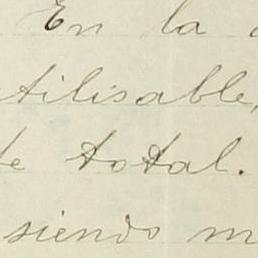 En la
tilisable,
te total.
siendo m